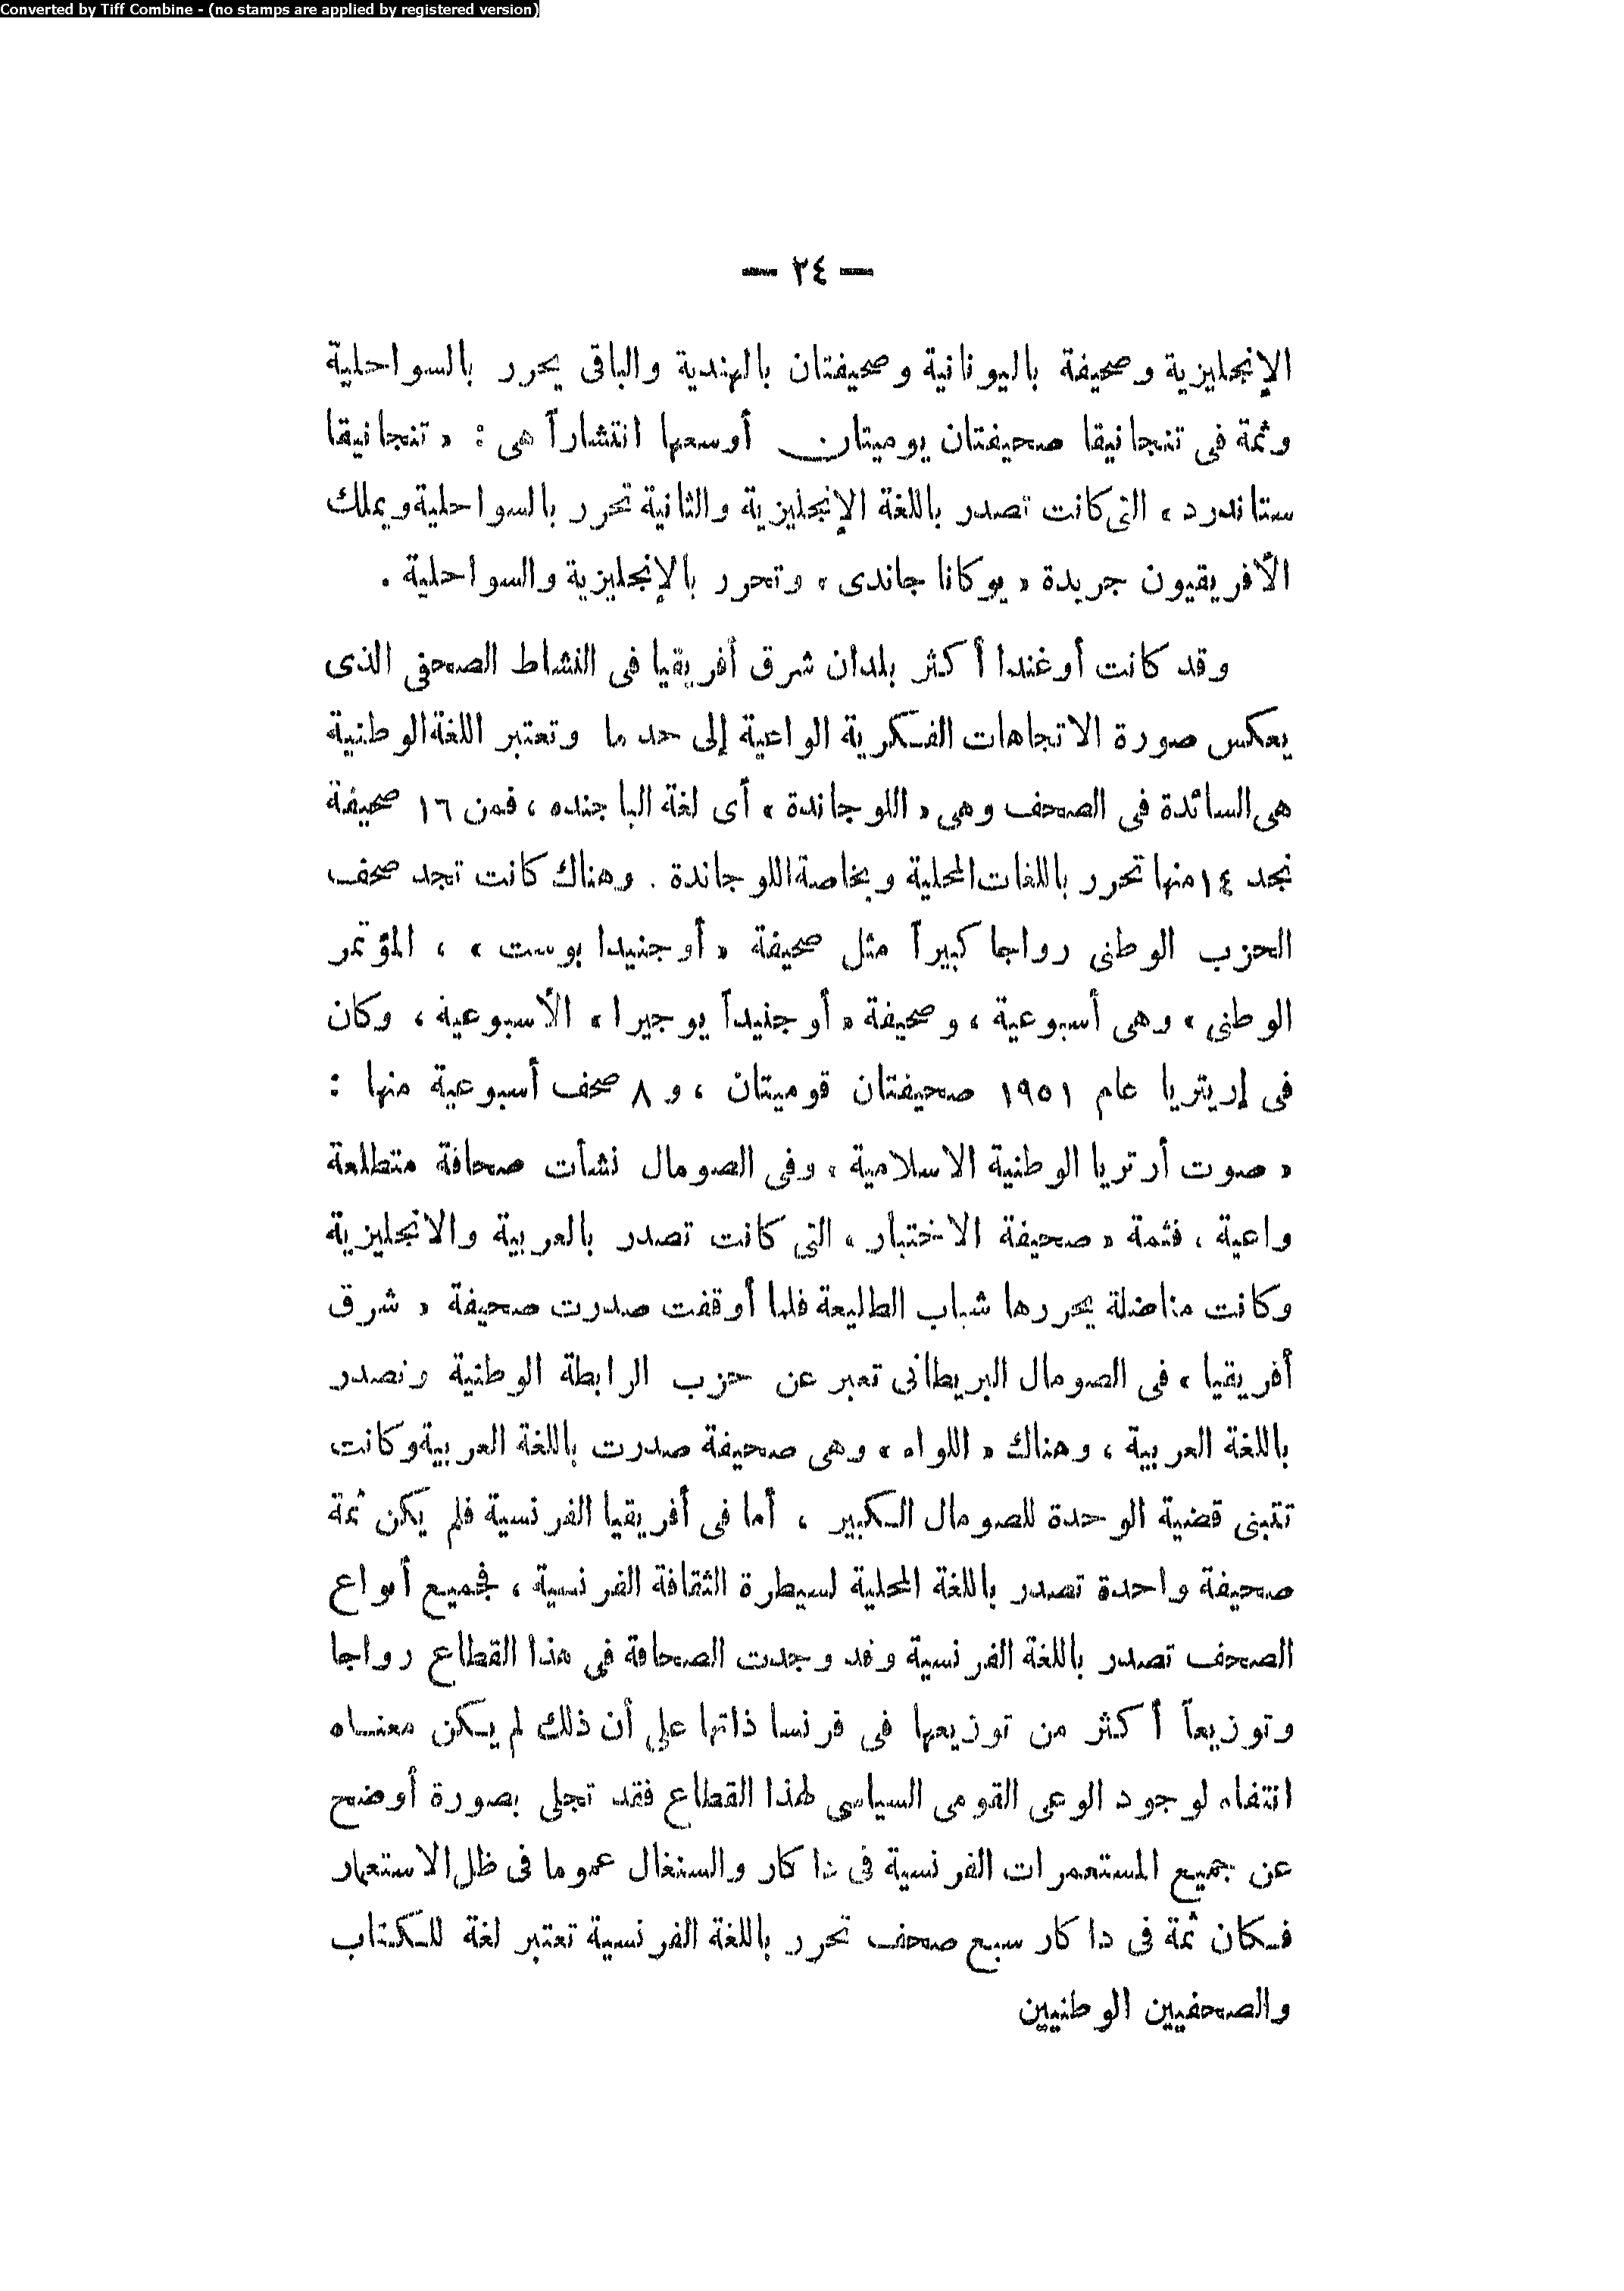 Converted by Tiff Combine - (no stamps are applied by registered version)
— ٢٤ —
الإنجليزية وصحيفة باليونانية وصحيفتان بالهندية والباقى يحرر بالسواحلية
وثمة فى تنجانيقا صحيفتان يوميتان أوسعها انتشاراً هى : « تنجانيقا
ستاندرد » التى كانت تصدر باللغة الإنجليزية والثانية تحرر بالسواحلية ويملك
الأفريقيون جريدة « يوكانا جاندى » وتحرر بالإنجليزية والسواحلية .
وقد كانت أوغندا أكثر بلدان شرق أفريقيا فى النشاط الصحفى الذى
يعكس صورة الاتجاهات الفكرية الواعية إلى حد ما وتعتبر اللغة الوطنية
هى السائدة فى الصحف وهى « اللوجاندة » أى لغة الباجنده ، فمن ١٦ صحيفة
نجد ١٤ منها تحرر باللغات المحلية وبخاصة اللوجاندة . وهناك كانت تجد صحف
الحزب الوطنى رواجا كبيراً مثل صحيفة « أوجنيدا بوست » ، المؤتمر
الوطنى » وهى أسبوعية ، وصحيفة « أوجنيداً يوجيرا » الأسبوعية ، وكان
فى إريتريا عام ١٩٥١ صحيفتان قوميتان ، و ٨ صحف أسبوعية منها :
« صوت أرتريا الوطنية الاسلامية » وفى الصومال نشأت صحافة متطلعة
واعية ، فثمة « صحيفة الاختبار » التى كانت تصدر بالعربية والانجليزية
وكانت مناضلة يحررها شباب الطليعة فلما أوقفت صدرت صحيفة « شرق
أفريقيا » فى الصومال البريطانى تعبر عن حزب الرابطة الوطنية وتصدر
باللغة العربية ، وهناك « اللواء » وهى صحيفة صدرت باللغة العربية وكانت
تتبنى قضية الوحدة للصومال الكبير ، أما فى أفريقيا الفرنسية فلم يكن ثمة
صحيفة واحدة تصدر باللغة المحلية لسيطرة الثقافة الفرنسية ، فجميع أنواع
الصحف تصدر باللغة الفرنسية وقد وجدت الصحافة فى هذا القطاع رواجا
وتوزيعاً أكثر من توزيعها فى فرنسا ذاتها على أن ذلك لم يكن معناه
انتفاء لوجود الوعى القومى السياسى لهذا القطاع فقد تجلى بصورة أوضح
عن جميع المستعمرات الفرنسية فى داكار والسنغال عموما فى ظل الاستعمار
فكان ثمة فى داكار سبع صحف تحرر باللغة الفرنسية تعتبر لغة للكتاب
والصحفيين الوطنيين